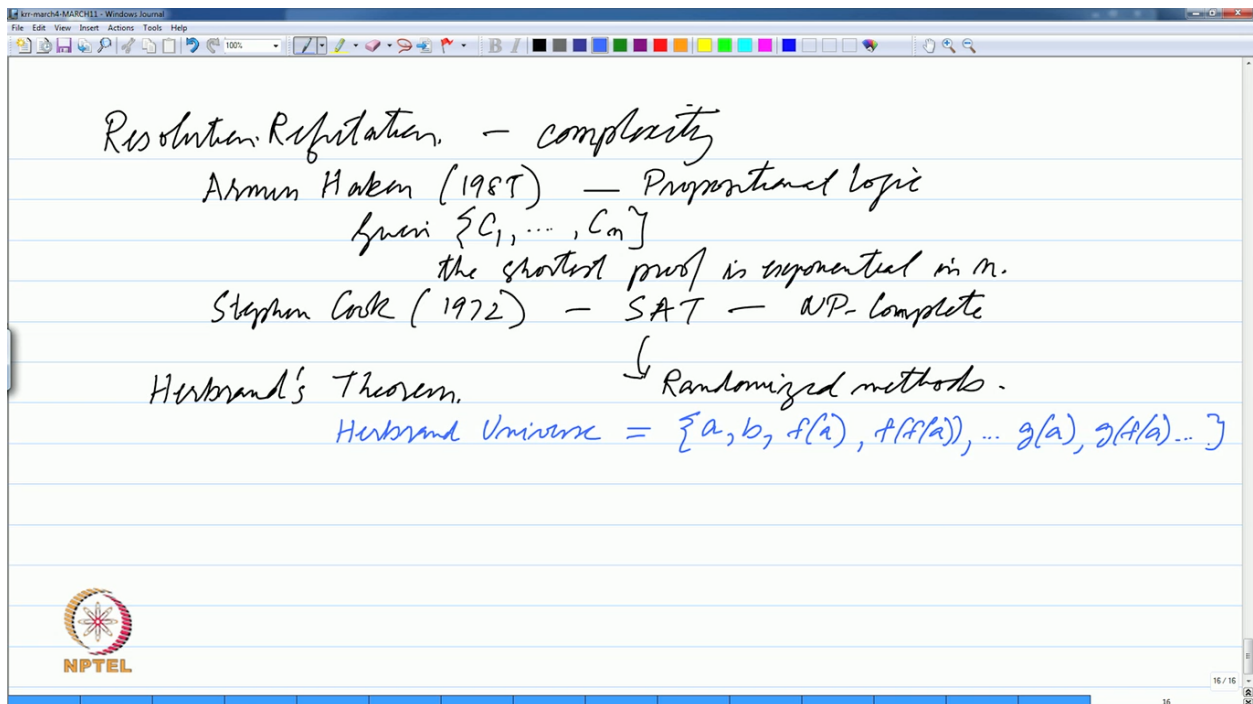 krr-march4-MARCH11 - Windows Journal
File Edit View Insert Actions Tools Help
100%
B I
Resolution Refutation. - complexity
Armin Haken (1985) — Propositional Logic
Given {C1, ..., Cn}
the shortest proof is exponential in n.
Stephen Cook (1972) - SAT — NP-Complete
Herbrand's Theorem. Randomized methods.
Herbrand Universe = {a, b, f(a), f(f(a)), ... g(a), g(f(a)... }
NPTEL
16 / 16
16